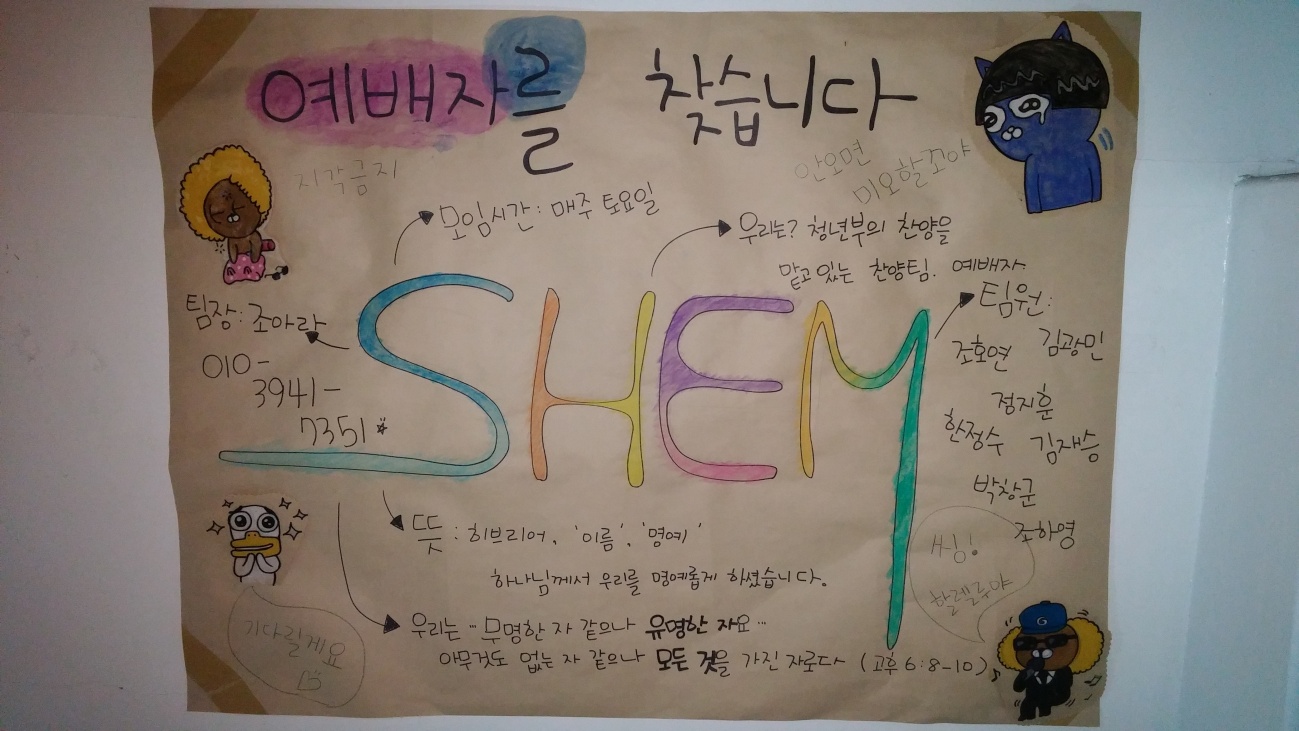 예배자를 찾습니다
지각금지
안오면
미오할꼬야
모임시간: 매주 토요일
우리는? 청년부의 찬양을
맡고 있는 찬양팀. 예배자.
팀장: 조아라
010-
3941-
7351
SHEM
팀원:
조호연 김광민
정지훈
한정수 김재승
박창군
조하영
뜻: 히브리어, '이름', '명예'
하나님께서 우리를 명예롭게 하셨습니다.
우리는 … 무명한 자 같으나 유명한 자요 …
아무것도 없는 자 같으나 모든 것을 가진 자로다 (고후 6:8-10)
기다릴게요
씽!
할렐루야
G